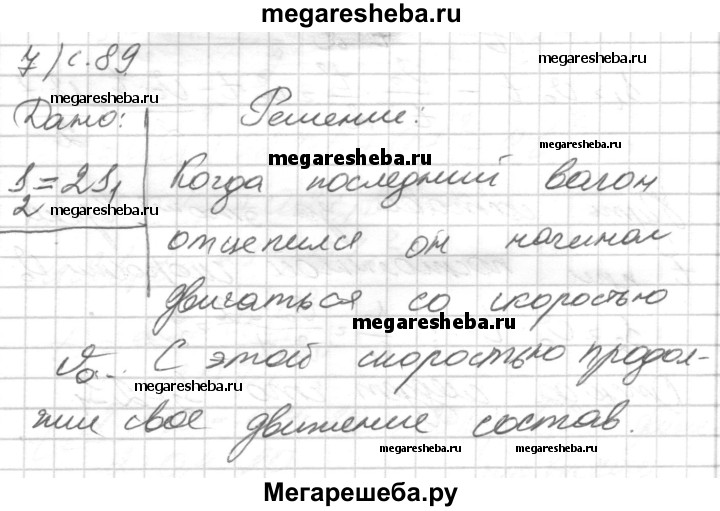 megaresheba.ru
7) с. 89
megaresheba.ru
megaresheba.ru
Дано: Решение:
megaresheba.ru
megaresheba.ru
S₂=2S₁ Когда последний вагон
megaresheba.ru
отцепился он начинал
двигаться со скоростью
megaresheba.ru
v₀. С этой скоростью продол-
megaresheba.ru
жил свое движение состав.
megaresheba.ru megaresheba.ru
Мегарешеба.ру